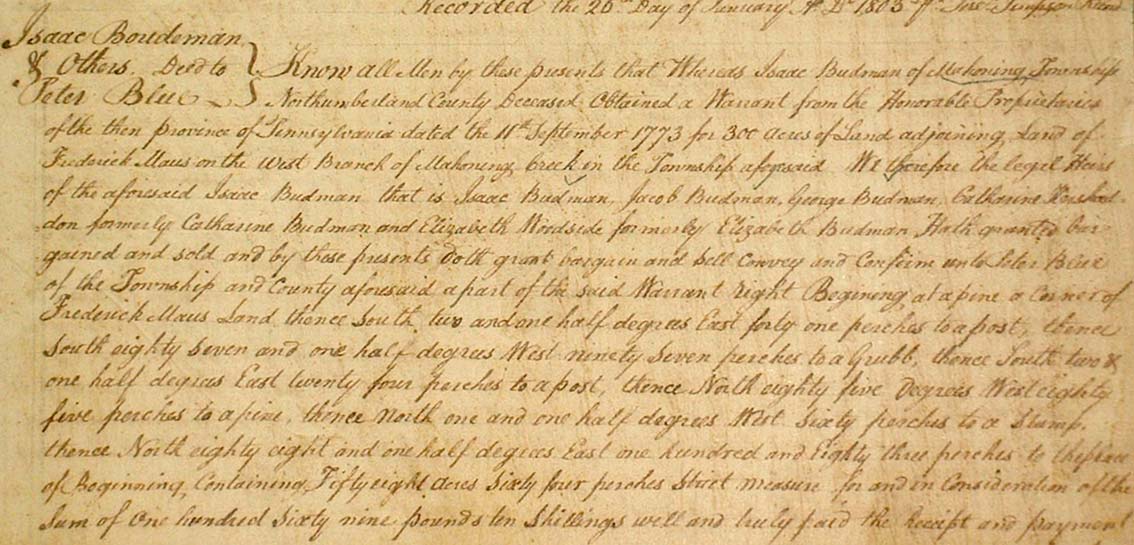 Recorded the 26th Day of January A. D. 1803
Isaac Boudeman
& Others Deed to
Peter Blue
Know all Men by these presents that Whereas Isaac Budman of Mahoning Township
Northumberland County Deceased Obtained a Warrant from the Honorable Proprietaries
of the then province of Pennsylvania dated the 11th September 1773 for 300 acres of Land adjoining Land of
Frederick Maus on the West Branch of Mahoning Creek in the Township aforesaid We therefore the legel Heirs
of the aforesaid Isaac Budman that is Isaac Budman, Jacob Budman, George Budman, Catharine
don formerly Catharine Budman and Elizabeth Woodside formerly Elizabeth Budman Hath granted bar-
gained and sold and by these presents doth grant bargain and sell Convey and Confirm unto Peter Blue
of the Township and County aforesaid a part of the said Warrant right Begining at a pine a Corner of
Frederick Maus Land thence South two and one half degrees East forty one perches to a post, thence
South eighty seven and one half degrees West ninety seven perches to a Grubb, thence South two &
one half degrees East twenty four perches to a post, thence North eighty five Degrees West eighty
five perches to a pine, thence North one and one half degrees West Sixty perches to a Stump,
thence North eighty eight and one half degrees East one hundred and Eighty three perches to the place
of Beginning Containing Fifty eight acres Sixty four perches Strict measure for and in Consideration of the
Sum of One hundred Sixty nine pounds ten Shillings well and truly paid the Receipt and payment